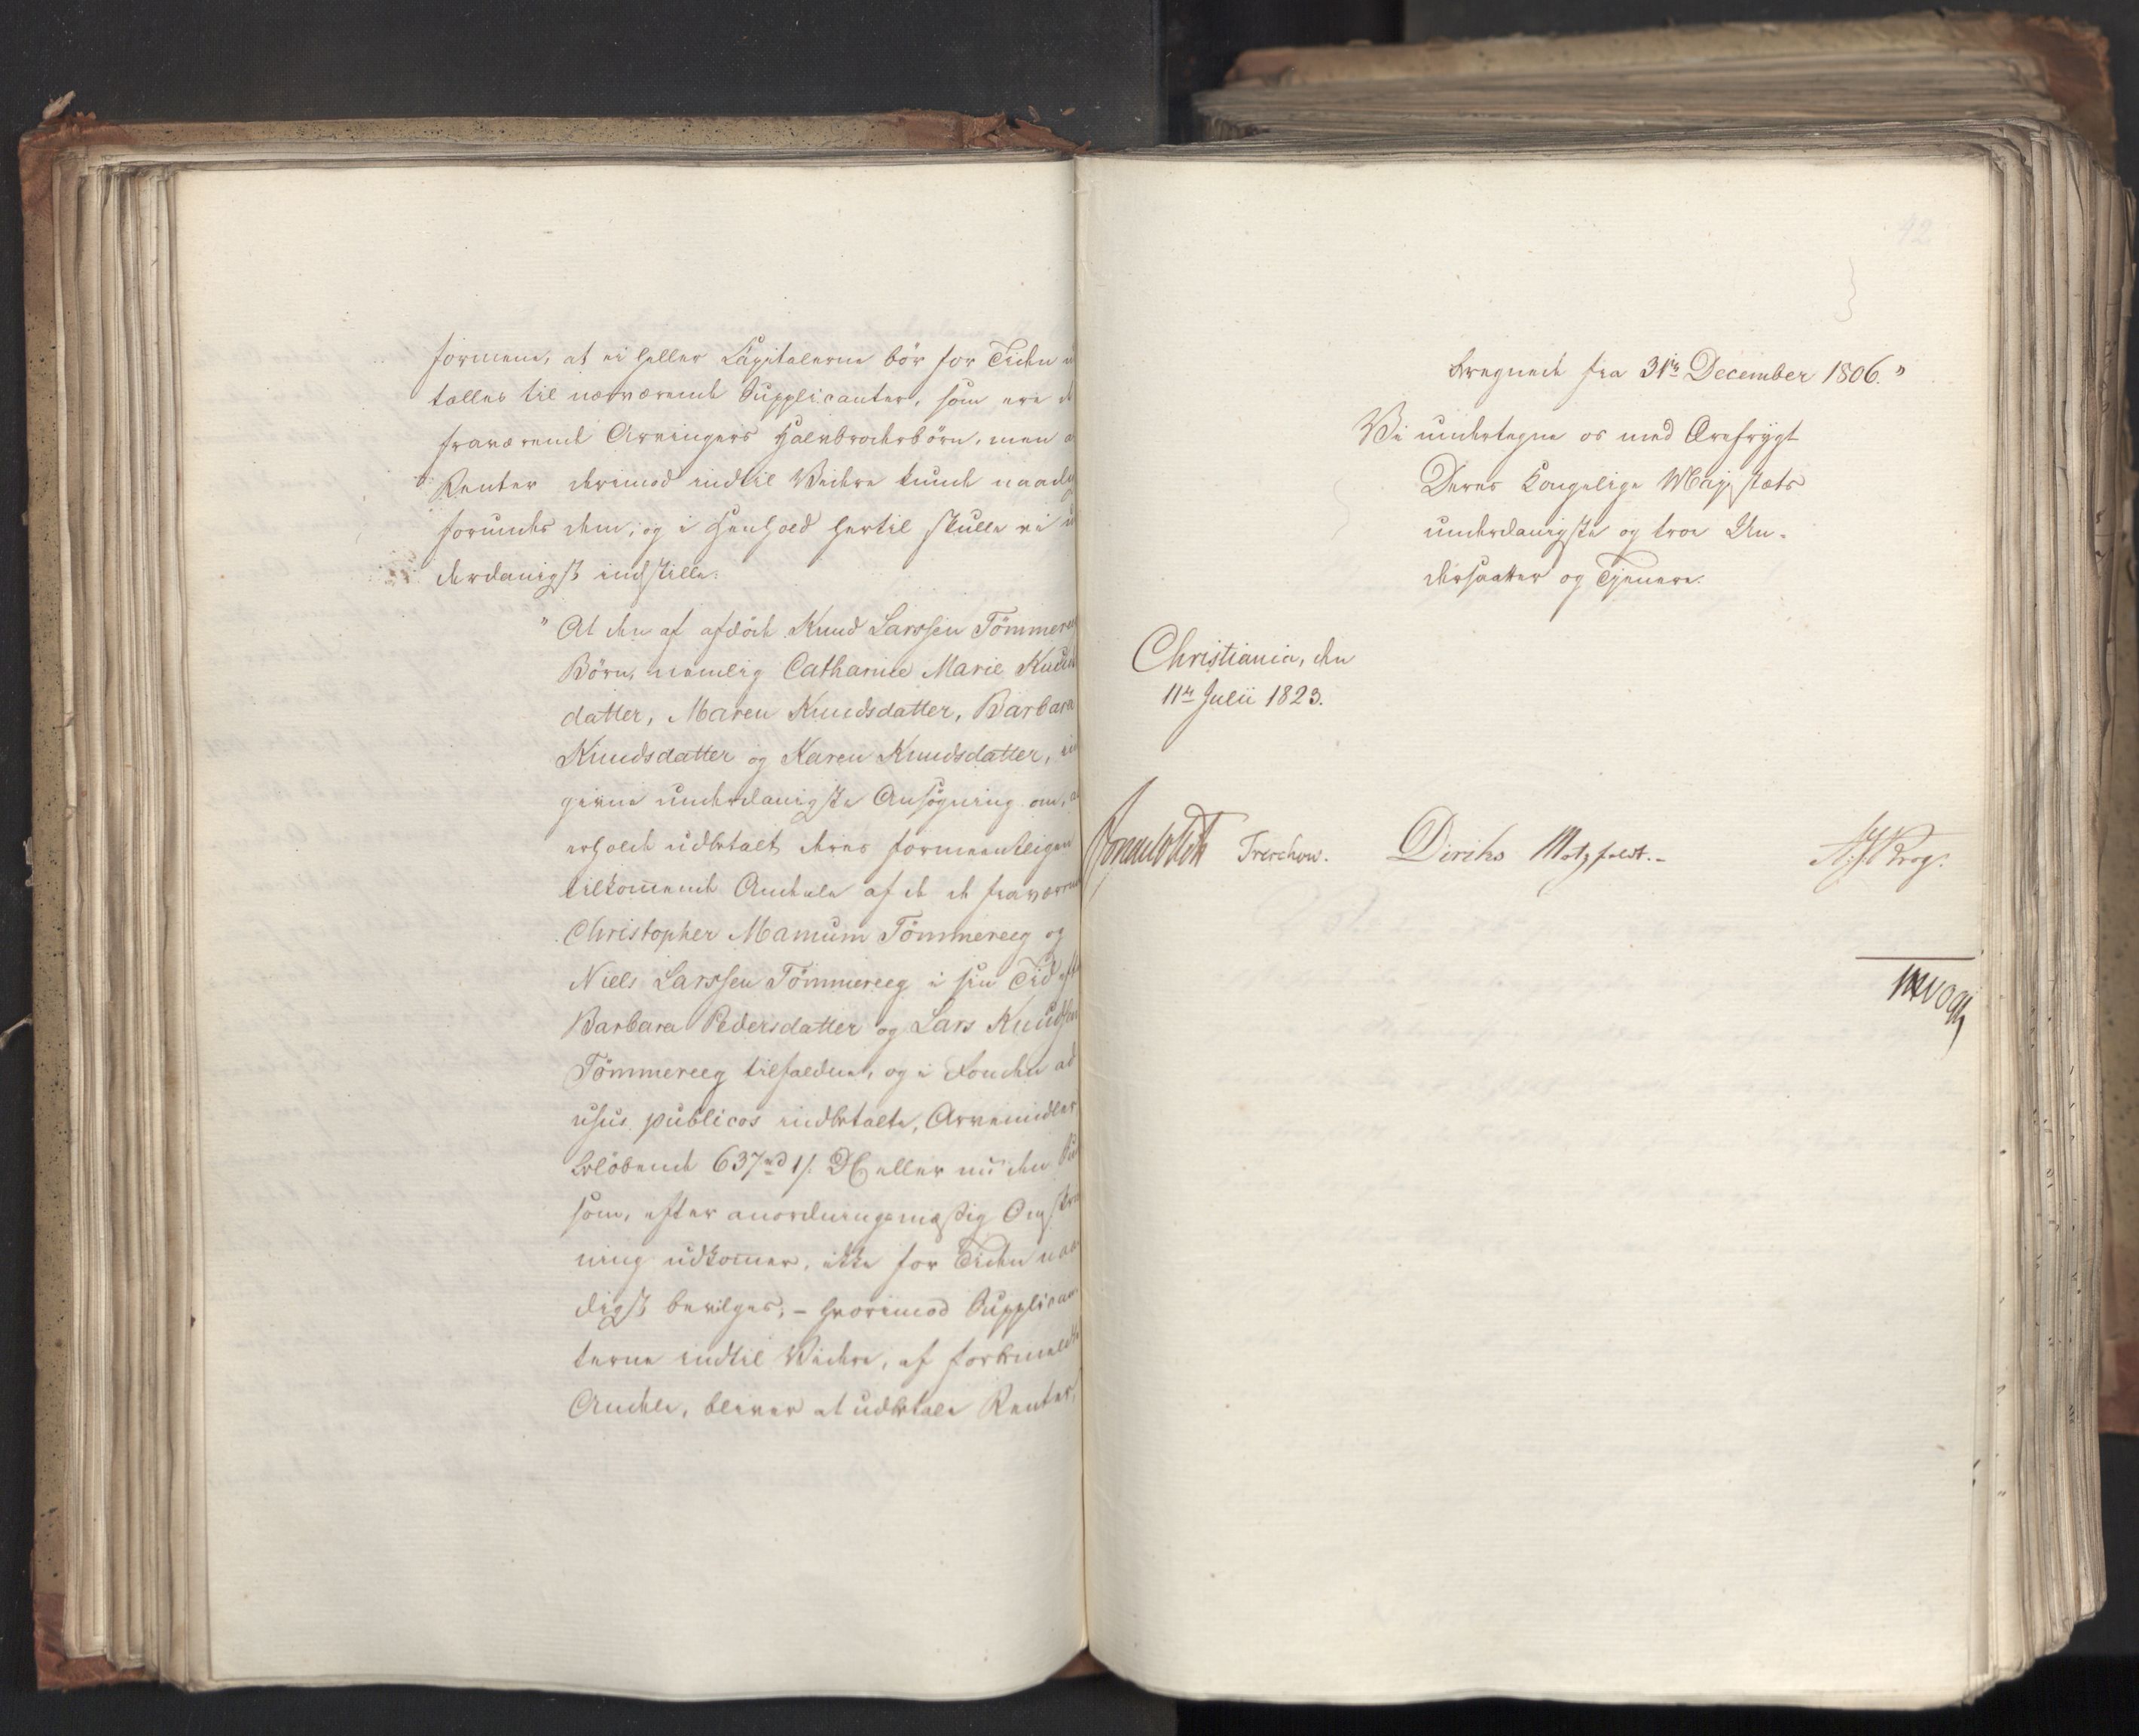 formene, at ei heller Capitalerne bör for Tiden
tælles til nærværende Supplicanter, som ere
fraværende Arvingers Halvbroderbörn, men
Renter derimod indtil Videre kunde naadig
forundes dem; og i Henhold hertil skulle vi
derdanigst indstille:
"At den af afdöde Knud Larssen Tömmereeg
Börn, nemlig Catharine Marie Knuds
datter, Maren Knudsdatter, Barbara
Knudsdatter og Karen Knudsdatter, ind
givne underdanigste Ansögning om, at
erholde udbetalt deres formeentligen
tilkom̄ende Andeele af de de fraværende
Christopher Mamum Tömmereeg og
Niels Larssen Tömmereeg i sin Tid efter
Barbara Pedersdatter og Lars Knudsen
Tömmereeg tilfaldne, og i Fonden ad
usus publicos indbetalte, Arvemidler
belöbende 637 rd 1 s. DC eller nu den Sum
som, efter anordningsmæssig Omskriv
ning udkom̄er, ikke for Tiden naa
digst bevilges; – hvorimod Supplican
terne indtil Videre, af forbemeldte
Andele, bliver at udbetale Renter,
42
beregnede fra 31te December 1806."
Vi undertegne os med Ærefrygt
Deres Kongelige Majestæts
underdanigste og troe Un-
dersaatter og Tjenere.
Christiania, den
11te Julii 1823.
Sommerhielm Treschow. Diriks Motzfeldt.- Krog.
Vogt